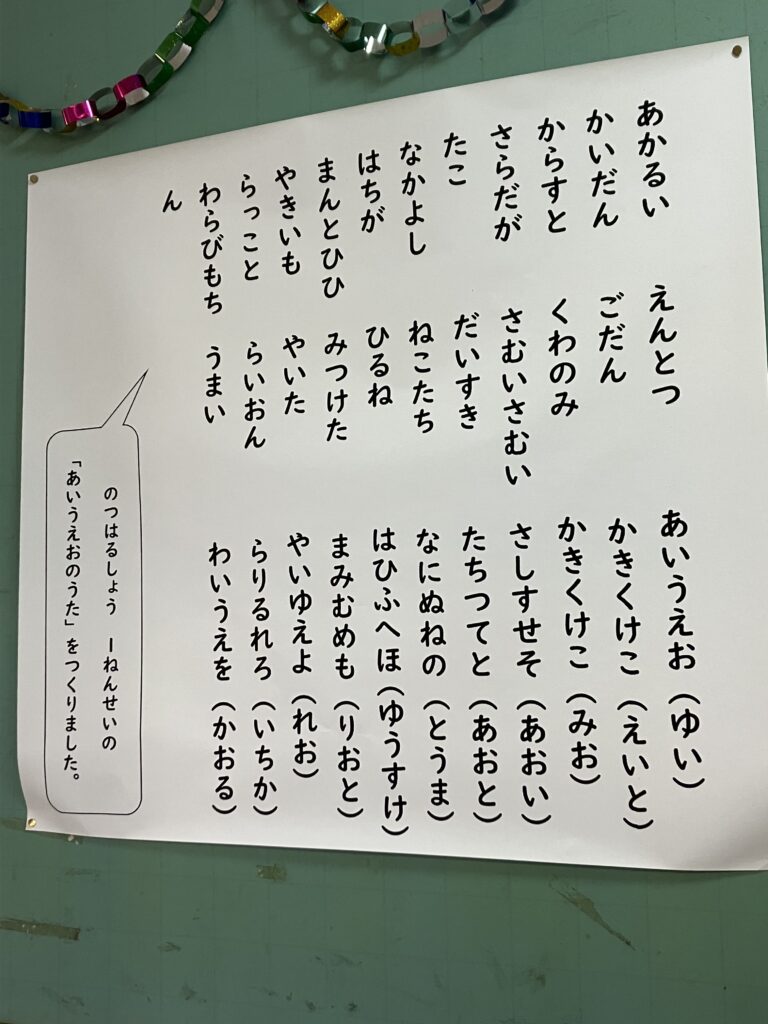 あかるい　えんとつ　あいうえお（ゆい）
かいだん　ごだん　かきくけこ（えいと）
からすと　くわのみ　かきくけこ（みお）
さらだが　さむいさむい　さしすせそ（あおい）
たこ　だいすき　たちつてと（あおと）
なかよし　ねこたち　なにぬねの（とうま）
はちが　ひるね　はひふへほ（ゆうすけ）
まんとひひ　みつけた　まみむめも（りおと）
やきいも　やいた　やいゆえよ（れお）
らっこと　らいおん　らりるれろ（いちか）
わらびもち　うまい　わいうえを（かおる）
ん
のつはるしょう　一ねんせいの
「あいうえおのうた」をつくりました。